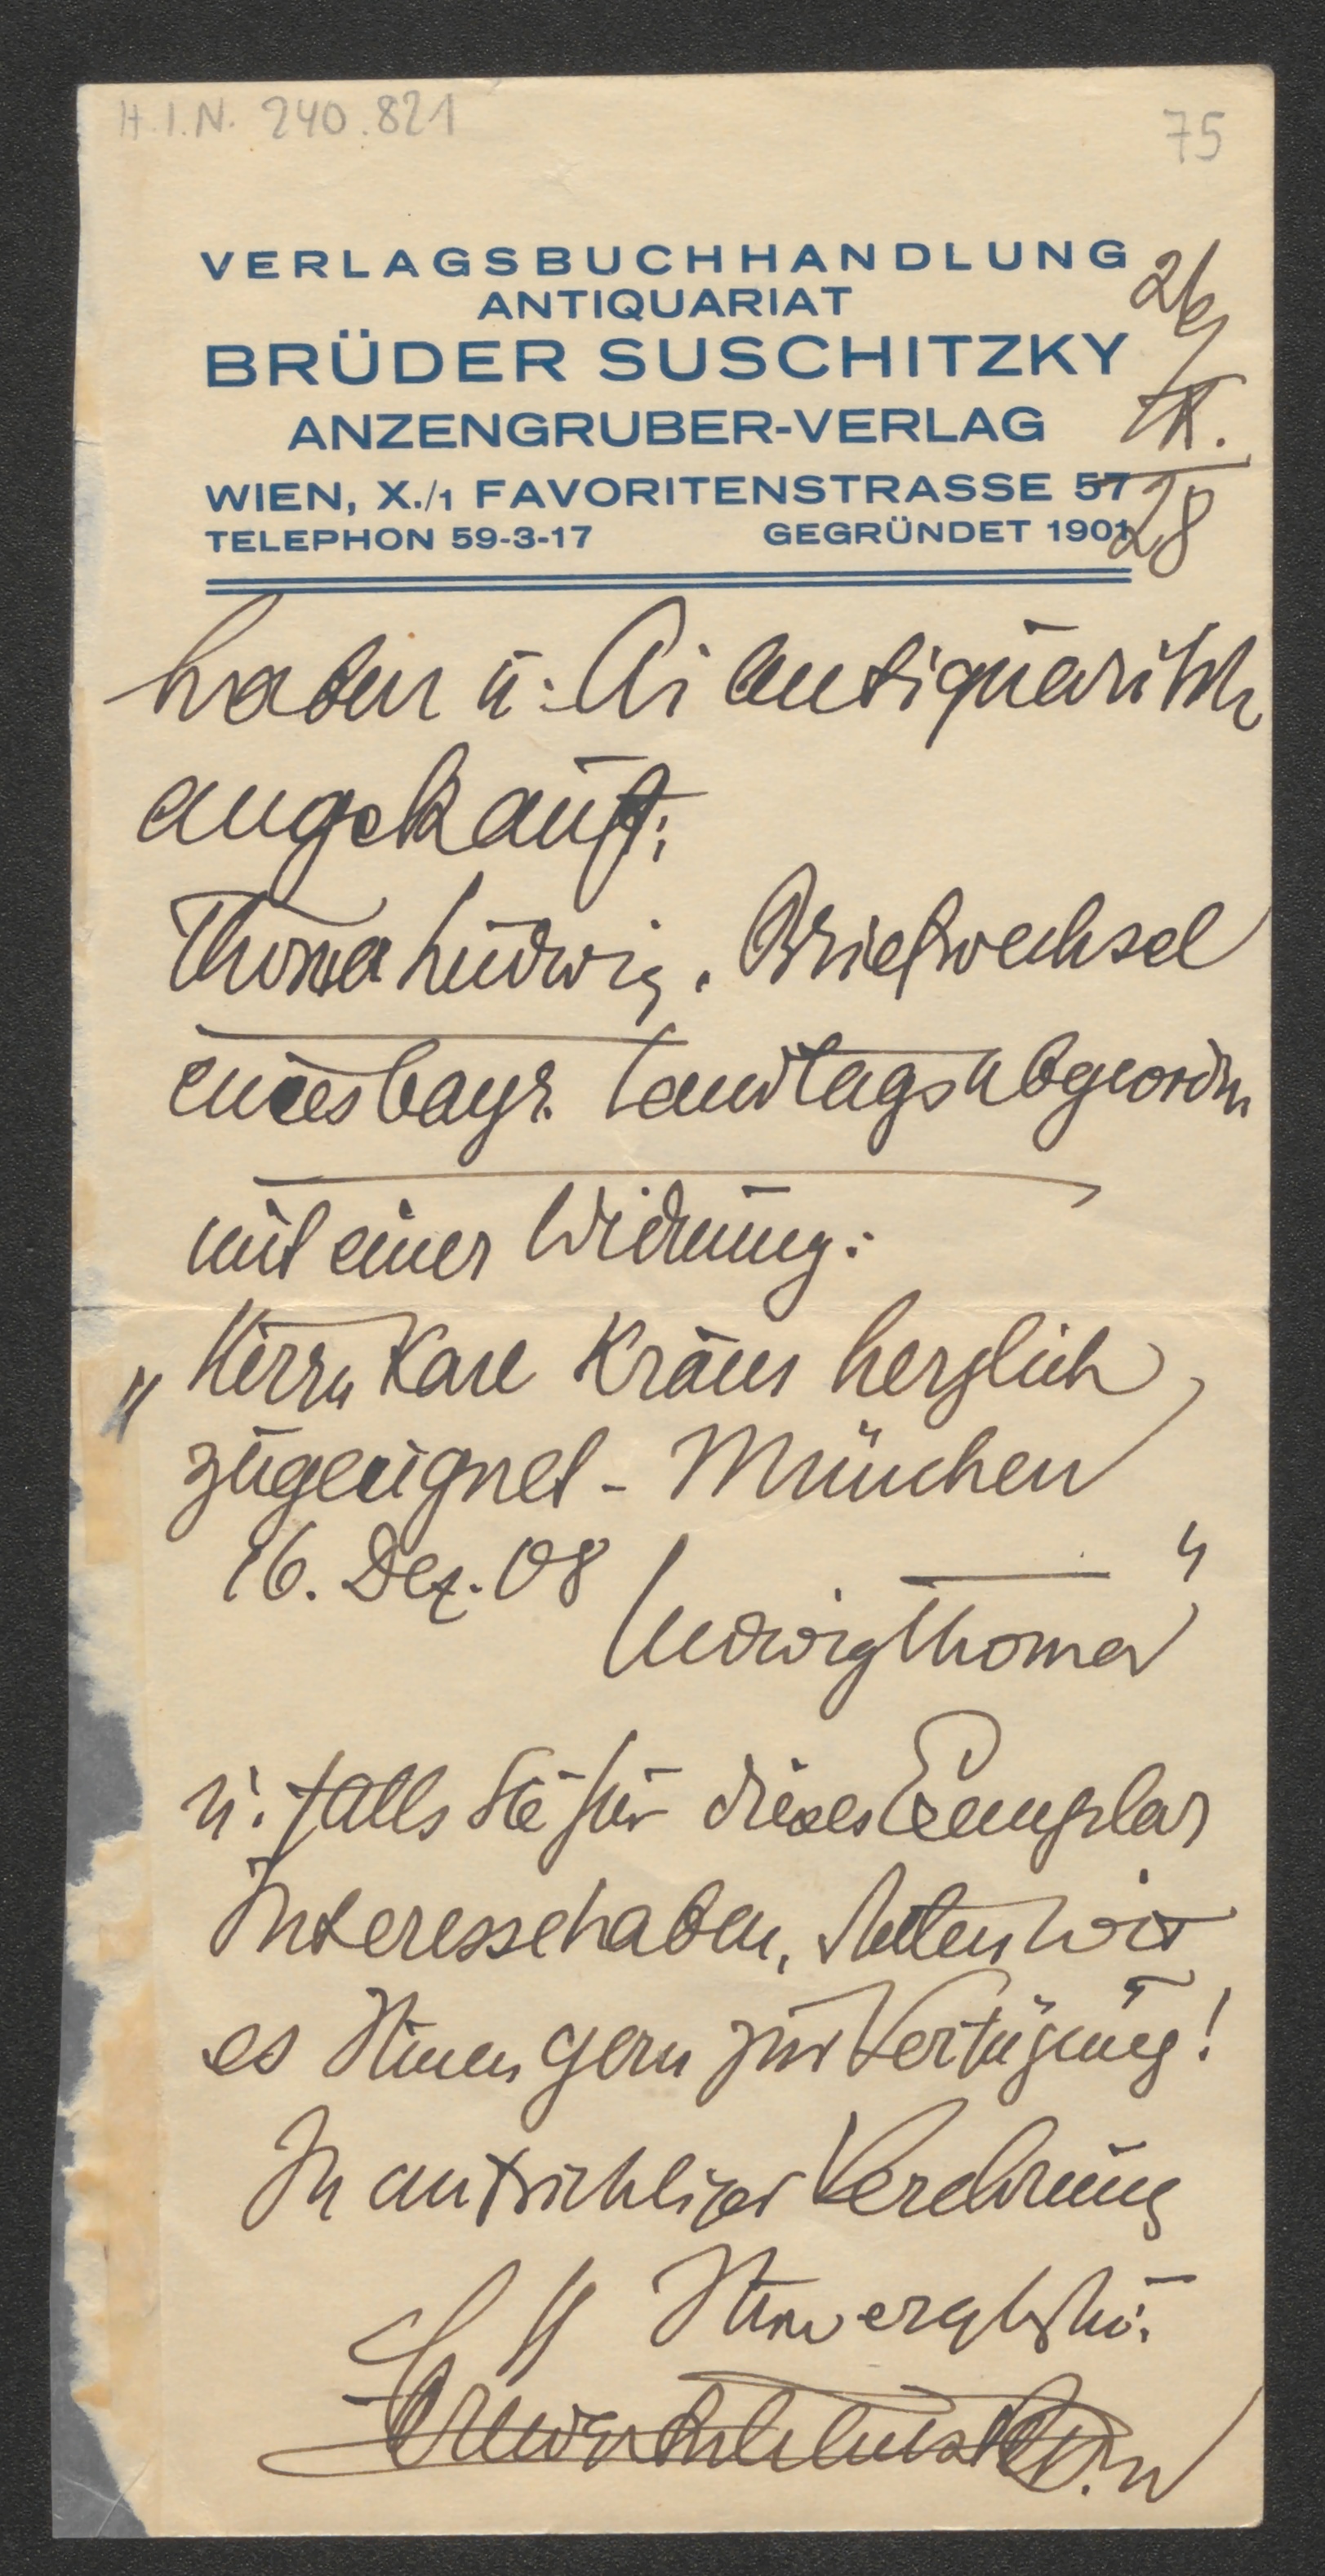 H.I.N. 240.821
75
VERLAGSBUCHHANDLUNG
ANTIQUARIAT
BRÜDER SUSCHITZKY
ANZENGRUBER-VERLAG
WIEN, X./1 FAVORITENSTRASSE 57
TELEPHON 59-3-17 GEGRÜNDET 1901
26/
IX.
28
haben u. antiquarisch
angekauft:
Thoma Ludwig. Briefwechsel
eines bayr. Landtagsabgeordn
mit einer Widmung:
„Herrn Karl Kraus herzlich
zugeeignet - München
16. Dez. 08
Ludwig Thoma"
u. falls Sie für dieses Exemplar
Interesse haben, stellen wir
es Ihnen gern zur Verfügung!
In aufrichtiger Verehrung
Ihr ergbst.